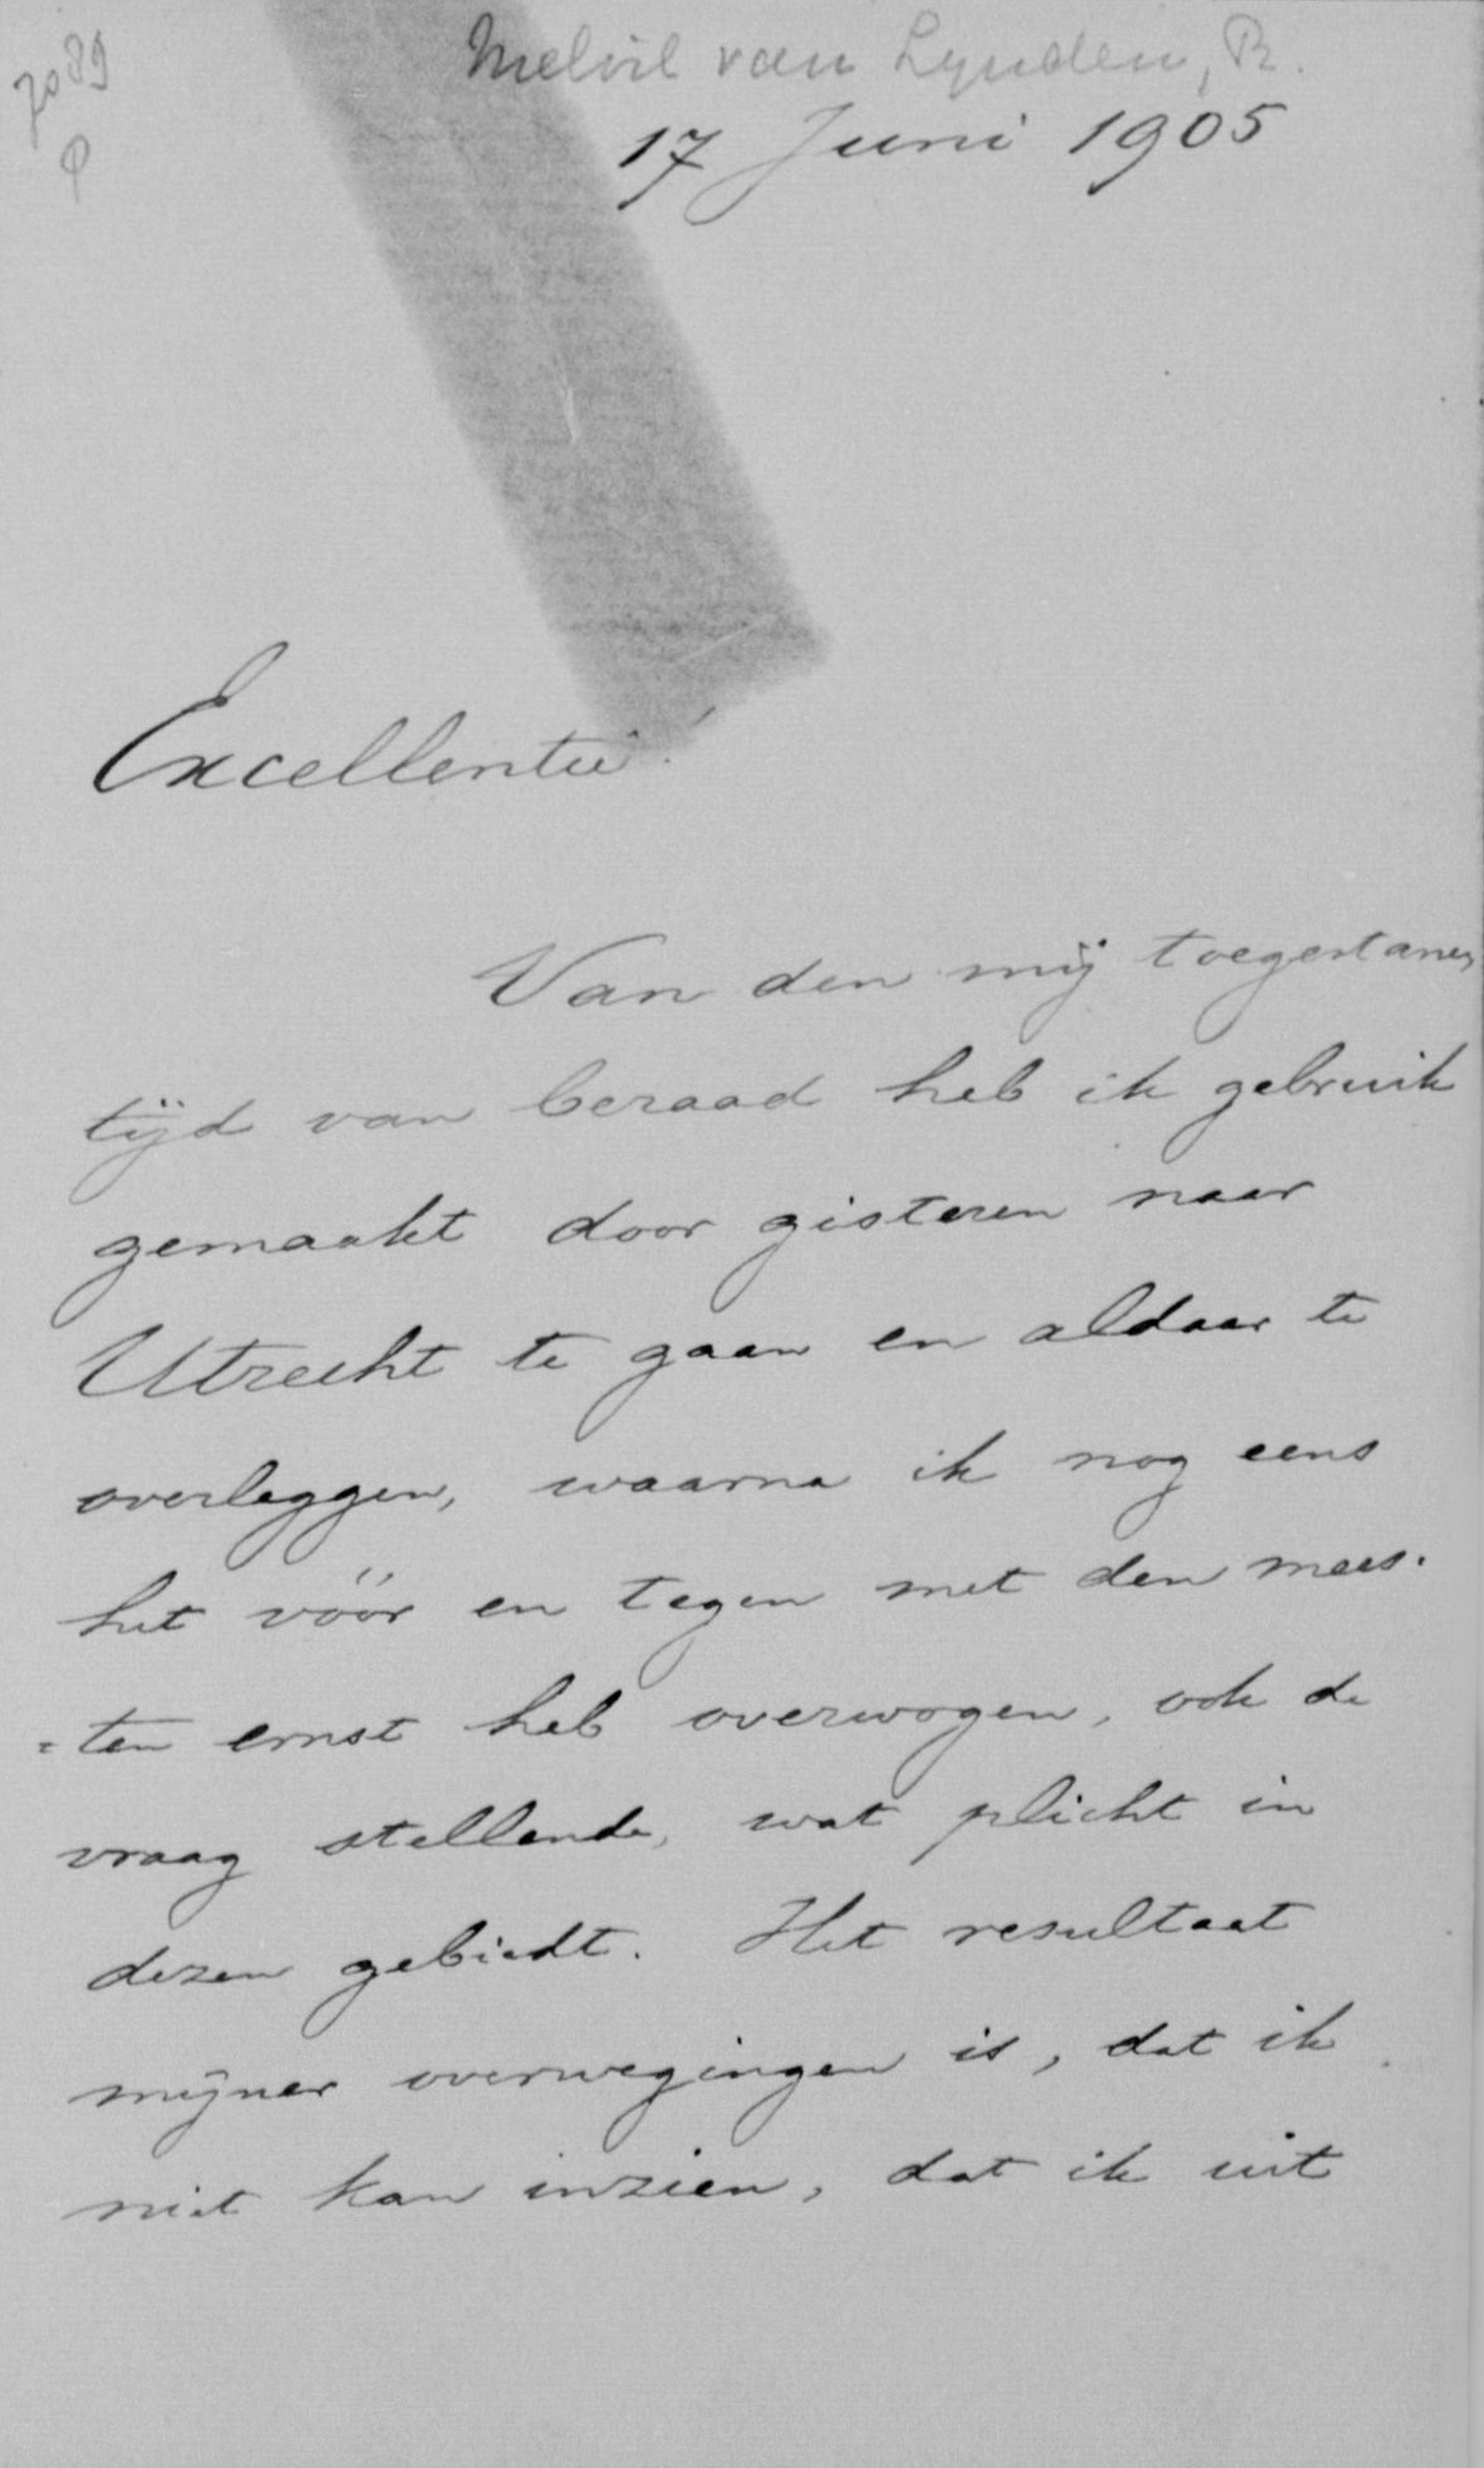 7089
Melvil van Lynden, R.
17 Juni 1905
Excellentie!
Van den mij toegestanen
tijd van beraad heb ik gebruik
gemaakt door gisteren naar
Utrecht te gaan en aldaar te
overleggen, waarna ik nog eens
het vóór en tegen met den mees-
=ten ernst heb overwogen, ook de
vraag stellende, wat plicht in
dezen gebiedt. Het resultaat
mijner overwegingen is, dat ik
niet kan inzien, dat ik uit